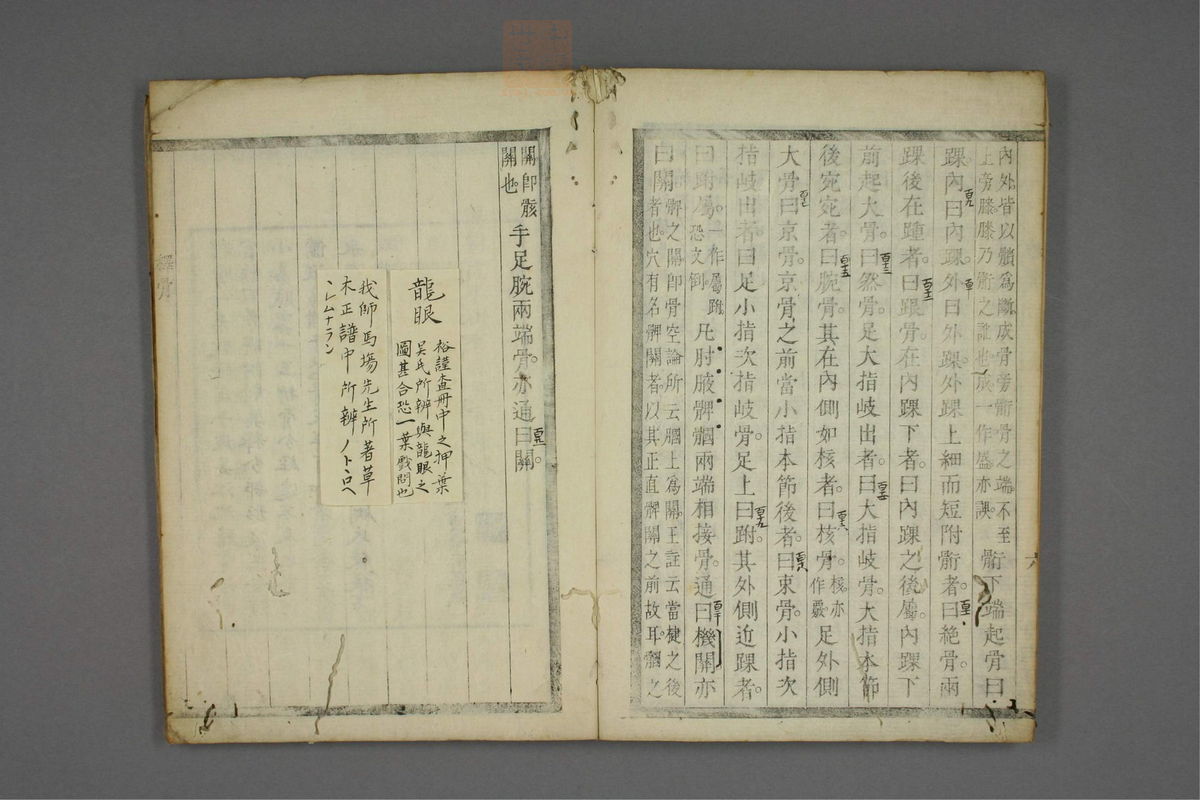 內外皆以髕為斷。成骨旁䯒骨之端不至
上旁膝。膝乃䯒之訛也。成一作盛亦誤。
䯒下端起骨曰
踝。內曰內踝。外曰外踝。外踝上細而短附䯒者。曰絶骨。兩
踝後在踵者。曰跟骨。在內踝下者。曰內踝之後屬。內踝下
前起大骨。曰然骨。足大指歧出者。曰大指歧骨。大指本節
後宛宛者。曰腕骨。其在內側如核者。曰核骨。
核亦
作覈。
足外側
大骨曰京骨。京骨之前當小指本節後者。曰束骨。小指次
指歧出者。曰足小指次指歧骨。足上曰跗。其外側近踝者。
曰跗屬。
一作屬跗
恐文倒。
凡肘腋髀膕兩端相接骨。通曰機關。亦
曰關。
髀之關即骨空論所云膕上為關。王註云當楗之後
者也。穴有名髀關者。以其正直髀關之前故耳。膕之
六
關即骸
關也。
手足腕兩端骨。亦通曰關。
龍眼
裕謹查冊中之押葉
吳氏所辨與龍眼之
圖甚合恐一葉戲問也
我師馬場先生所著草
木正譜中所辨ノトコヘ
シムナラン
釋骨